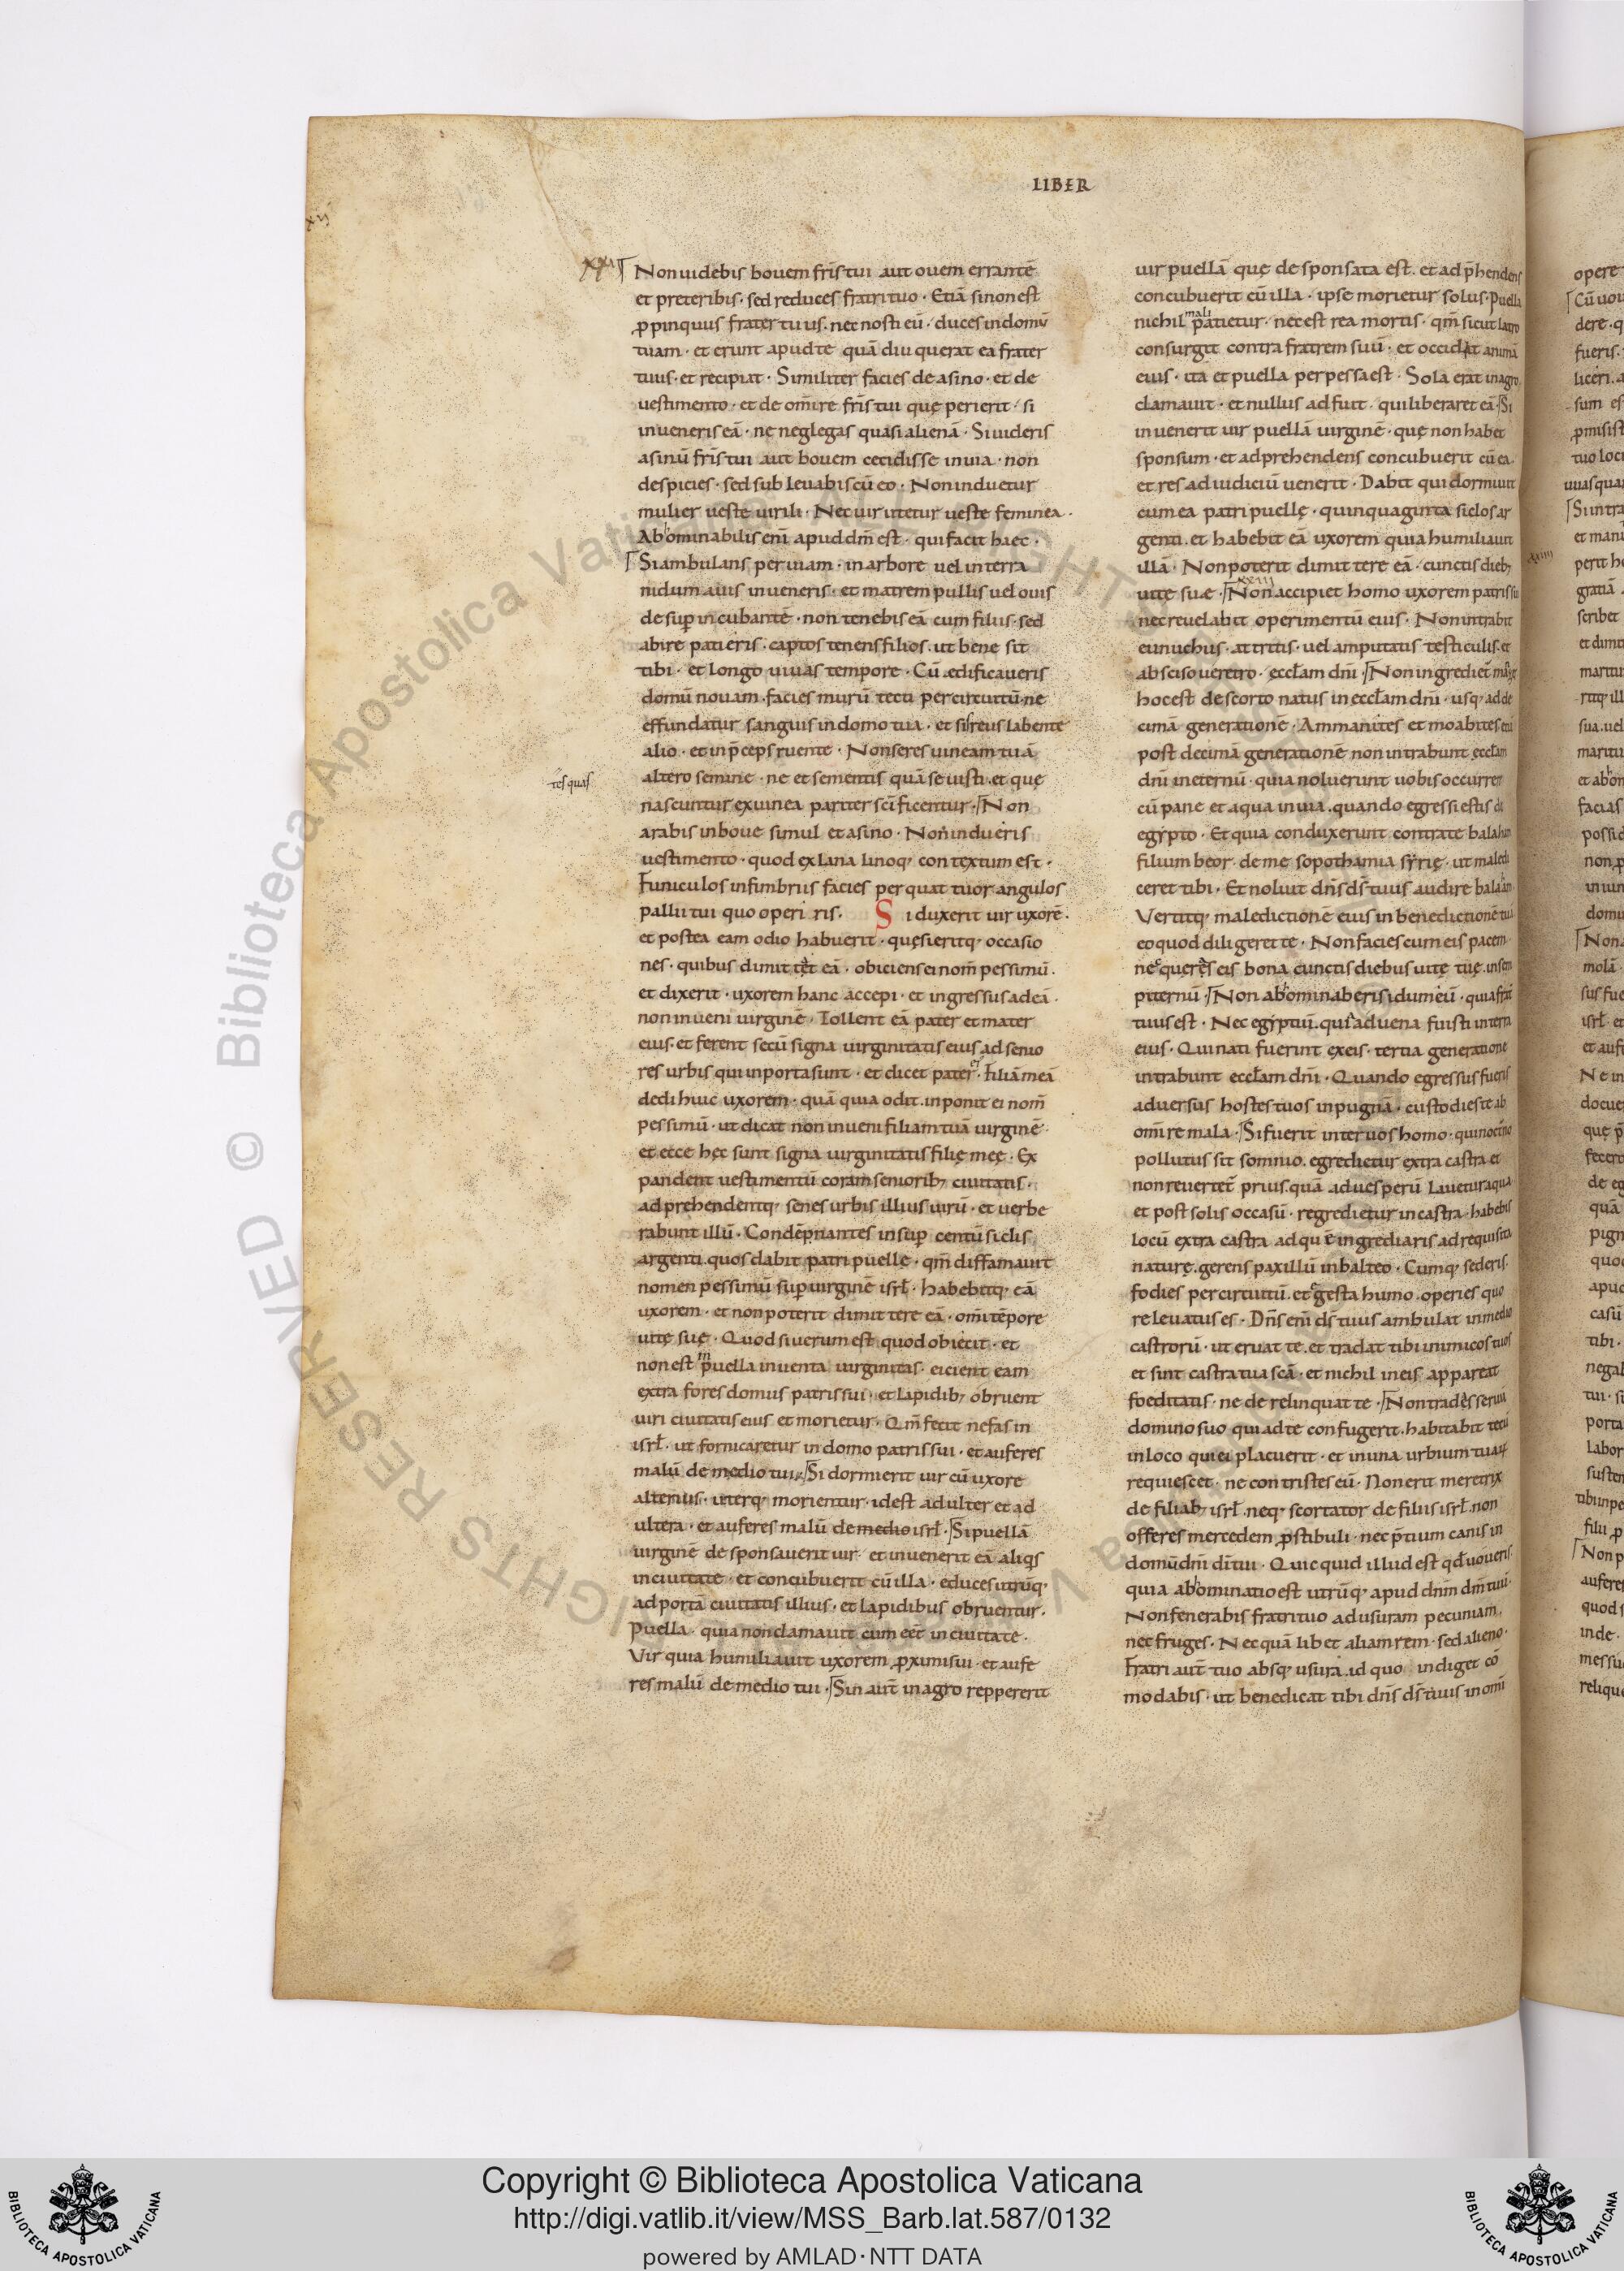 LIBER
xxij
Non uidebis bouem frīs tui aut ouem errantē
et preteribis · sed reduces fratri tuo · Etiā si non est
ꝓpinquus frater tuus · nec nosti eū · duces in domū
tuam · et erunt apud te quādiu querat ea frater
tuus · et recipiat · Similiter facies de asino · et de
uestimento · et de om̄i re frīs tui quę perierit · si
inueneris eā · ne neglegas quasi alienā · Si uideris
asinū frīs tui aut bouem cecidisse in uia · non
despicies · sed subleuabis cū eo · Non induetur
mulier ueste uirili · Nec uir utetur ueste feminea ·
Abhominabilis enī apud dm̄ est · qui facit haec ·
Si ambulans per uiam · in arbore uel in terra
nidum auis inueneris · et matrem pullis uel ouis
desuꝑ incubantē · non tenebis eā cum filiis · sed
abire patieris · captos tenens filios · ut bene sit
tibi · et longo uiuas tempore · Cū ædificaueris
domū nouam · facies murū tecti per circuitū · ne
effundatur sanguis in domo tua · et sis reus labente
alio · et in p̄ceps ruente · Non seres uineam tuā
altero semine · ne et sementis quā seuisti · et quę
tes quas
nascuntur ex uinea pariter scīficentur · Non
arabis in boue simul et asino · Non indueris
uestimento · quod ex lana linoq; contextum est ·
Funiculos in fimbriis facies per quattuor angulos
pallii tui quo operiris. Si duxerit uir uxorē ·
et postea eam odio habuerit · quęsieritq; occasio
nes · quibus dimittet eā · obiciens ei nom̄ pessimū ·
et dixerit · uxorem hanc accepi · et ingressus ad eā ·
non inueni uirginē · Tollent eā pater et mater
eius · et ferent secū signa uirginitatis eius ad senio
res urbis qui in porta sunt · et dicet pater · Filiā meā
dedi huic uxorem · quā quia odit · inponit ei nom̄
pessimū · ut dicat non inueni filiam tuā uirginē ·
et ecce hęc sunt signa uirginitatis filię meę · Ex
pandent uestimentū coram seniorib; ciuitatis ·
adprehendentq; senes urbis illius uirū · et uerbe
rabunt illū · Condēpnantes insuꝑ centū siclis
argenti · quos dabit patri puellę · qm̄ diffamauit
nomen pessimū suꝑ uirginē isrł · habebitq; eā
uxorem · et non poterit dimittere eā · om̄i tēpore
uitę suę · Quod si uerum est quod obiecit · et
non est in puella inuenta uirginitas · eicient eam
extra fores domus patris sui · et lapidib; obruent
uiri ciuitatis eius et morietur · Qm̄ fecit nefas in
isrł · ut fornicaretur in domo patris sui · et auferes
malū de medio tui · Si dormierit uir cū uxore
alterius · uterq; morientur · id est adulter et ad
ultera · et auferes malū de medio isrł · Si puellā
uirginē desponsauerit uir · et inuenerit eā aliqs
in ciuitate · et concubuerit cū illa · educes utrūq;
ad portā ciuitatis illius · et lapidibus obruentur ·
Puella · quia non clamauit cum eēt in ciuitate ·
Vir quia humiliauit uxorem ꝓximi sui · et aufe
res malū de medio tui · Sin aut̄ in agro reppererit
uir puellā quę desponsata est · et adp̄hendens
concubuerit cū illa · ipse morietur solus · Puella
nichil mali patietur · nec est rea mortis · qm̄ sicut latro
consurgit contra fratrem suū · et occidit animā
eius · ita et puella perpessa est · Sola erat in agro
clamauit · et nullus adfuit · qui liberaret eā · Si
inuenerit uir puellā uirginē · quę non habet
sponsum · et adprehendens concubuerit cū ea ·
et res ad iudiciū uenerit · Dabit qui dormiuit
cum ea patri puellę · quinquaginta siclos ar
genti · et habebit eā uxorem quia humiliauit
illā · Non poterit dimittere eā · cunctis dieb;
xxiii
uitę suę · Non accipiet homo uxorem patris sui
nec reuelabit operimentū eius · Non intrabit
eunuchus · attritis · uel amputatis testiculis · et
absciso ueretro · ecclam dnī · Non ingrediet̄ māzer
hoc est de scorto natus in ecclam dnī · usq; ad de
cimā generationē · Ammanites et moabites etiā
post decimā generationē non intrabunt ecclam
dnī in eternū · quia noluerunt uobis occurrere
cū pane et aqua in uia · quando egressi estis de
egypto · Et quia conduxerunt contra te balaham
filium beor · de mesopothamia syrię · ut maledi
ceret tibi · Et noluit dnīs ds̄ tuus audire balaam
Vertitq; maledictionē eius in benedictionē tuā
eo quod diligeret te · Non facies cum eis pacem
nec queres eis bona cunctis diebus uitę tuę · in sem
piternū · Non abhominaberis idumeū · quia frat̄
tuus est · Nec egyptiū · quia aduena fuisti in terra
eius · Qui nati fuerint ex eis · tertia generatione
intrabunt ecclam dnī · Quando egressus fueris
aduersus hostes tuos in pugnā · custodies te ab
om̄i re mala · Si fuerit inter uos homo · qui nocturno
pollutus sit somnio · egredietur extra castra et
non reuertet̄ prius · quā ad uesperū lauetur aqua
et post solis occasū · regredietur in castra · habebis
locū extra castra ad quē ingrediaris ad requisita
naturę · gerens paxillū in balteo · Cumq; sederis ·
fodies per circuitū · et egesta humo · operies quo
releuatus es · Dn̄s enī ds̄ tuus ambulat in medio
castrorū · ut eruat te · et tradat tibi inimicos tuos
et sint castra tua scā · et nichil in eis appareat
foeditatis · ne derelinquat te · Non trades seruū
domino suo qui ad te confugerit · habitabit tecū
in loco qui ei placuerit · et in una urbium tuarū
requiescet · ne contristes eū · Non erit meretrix
de filiab; isrł · neq; scortator de filiis isrł · non
offeres mercedem ꝓstibuli · nec p̄tium canis in
domū dnī dī tui · Quicquid illud est qd uoueris ·
quia abhominatio est utrūq; apud dnm̄ dm̄ tuū ·
Non fenerabis fratri tuo ad usuram pecuniam ·
nec fruges · Nec quālibet aliam rem · sed alieno ·
Fratri aut̄ tuo absq; usura · id quo indiget cō
modabis · ut benedicat tibi dn̄s ds̄ tuus in om̄i
xxiiii
opere
Cū uou
dere · q
fueris ·
sum es
ꝓmisist
tuo loc
Si intra
et manu
perit h
gratiā
scribet
et dimit
maritu
sua · uel
maritu
et abhom
facias
possid
non p
domu
Non
molā
sus fue
isrł · et
et aufe
Ne in
docue
que p̄
fecero
de eg
quā
pign
quo
apud
casū
tibi ·
negab
tui · si
porta
Labor
filii ꝓ
Non p
aufere
quod s
inde ·
messu
relique
Copyright © Biblioteca Apostolica Vaticana
http://digi.vatlib.it/view/MSS_Barb.lat.587/0132
powered by AMLAD·NTT DATA
BIBLIOTECA APOSTOLICA VATICANA
BIBLIOTECA APOSTOLICA VATICANA
© Biblioteca Apostolica Vaticana ALL RIGHTS RESERVED